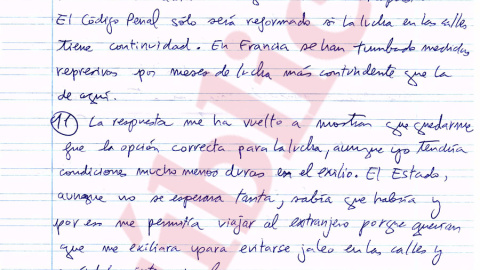 El Código Penal sólo será reformado si la lucha en las calles
tiene continuidad. En Francia se han tumbado medidas
represivas por meses de lucha más contundente que la
de aquí.
11 La respuesta me ha vuelto a mostrar que quedarme
fue la opción correcta para la lucha, aunque yo tendría
condiciones mucho menos duras en el exilio. El Estado,
aunque no se esperara tanta, sabía que habría y
por eso me permitía viajar al extranjero porque querían
que me exiliara para evitarse jaleo en las calles y